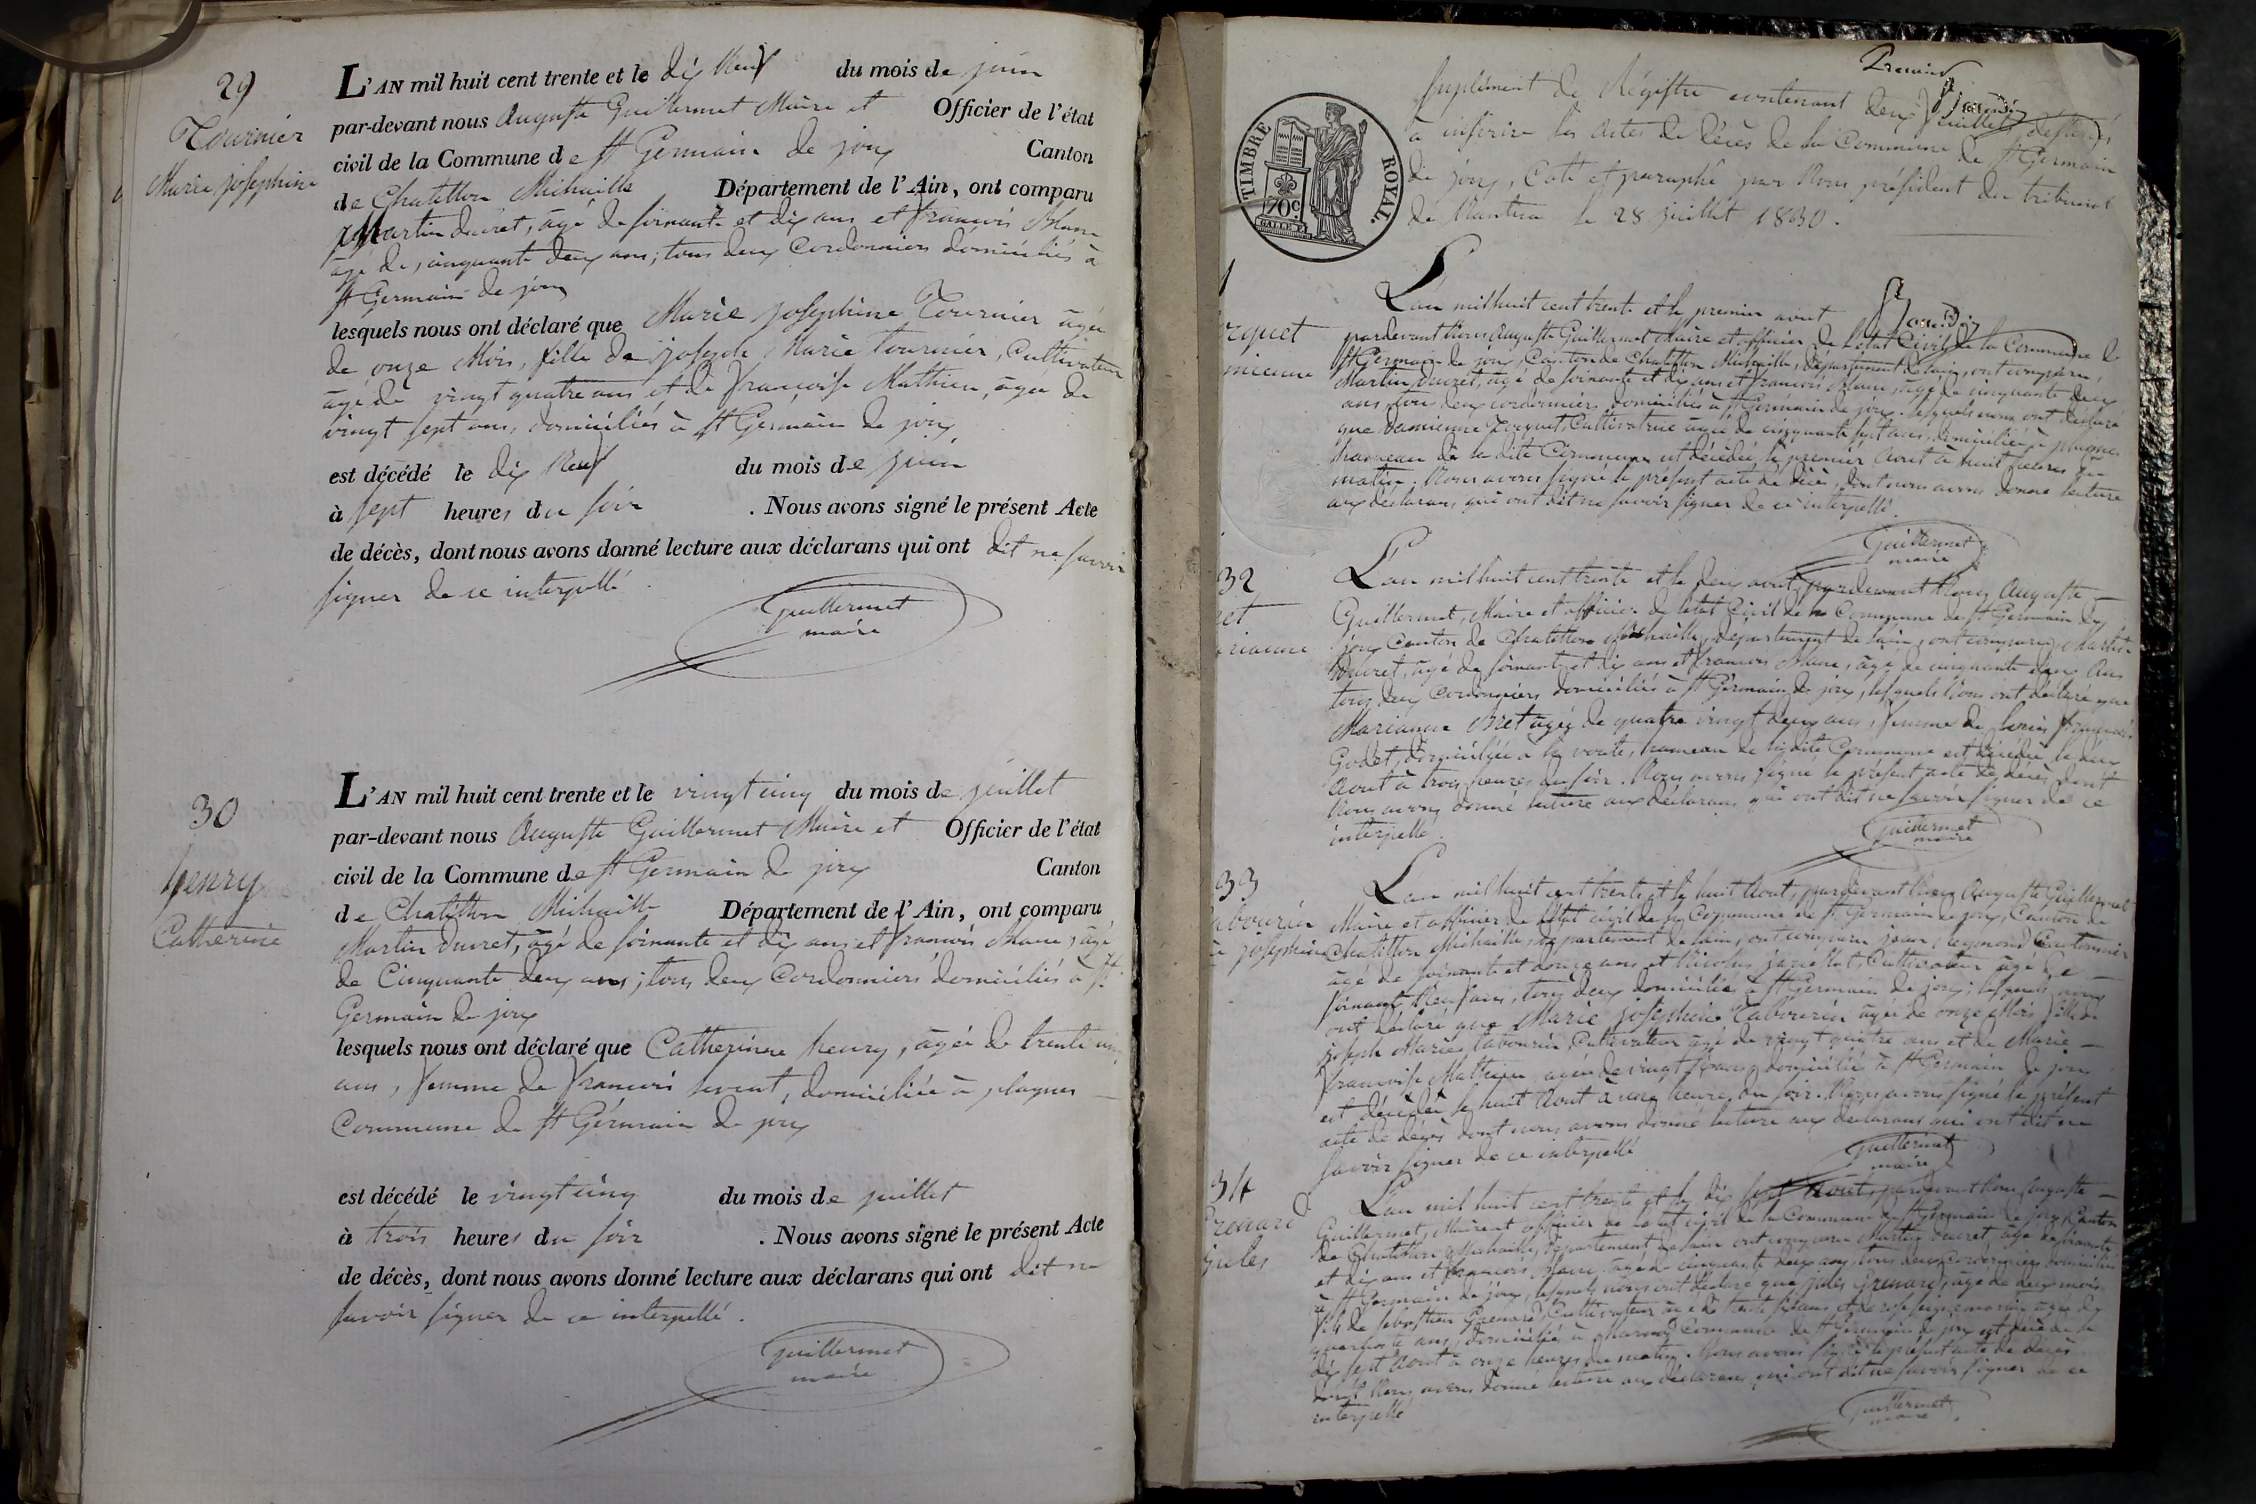 29
Tournier
Marie josephine
L'AN mil huit cent trente et le dix neuf du mois de juin
par-devant nous Auguste Guillermet Maire et Officier de l'état
civil de la Commune de St Germain de joux Canton
de Chatillon Michaille Département de l'Ain, ont comparu
Martin ducret, âgé de soixante et dix ans et francois Blanc
âgé de, cinquante deux ans; tous deux Cordonniers domiciliés à
St Germain de joux
lesquels nous ont déclaré que Marie josephine Tournier âgée
de onze Mois, fille de joseph Marie tournier, Cultivateur
âgé de vingt quatre ans et de françoise Mathieu, âgée de
vingt sept ans, domiciliés à St Germain de joux
est décédé le dix neuf du mois de juin
à sept heures du soir . Nous avons signé le présent Acte
de décès, dont nous avons donné lecture aux déclarans qui ont dit ne savoir
signer de ce interpellé.
Guillermet
maire
30
henry
Catherine
L'AN mil huit cent trente et le vingt cinq du mois de juillet
par-devant nous Auguste Guillermet Maire et Officier de l'état
civil de la Commune de St Germain de joux Canton
de Chatillon Michaille Département de l'Ain, ont comparu
Martin ducret, âgé de soixante et dix ans et francois Blanc, âgé
de Cinquante deux ans; tous deux Cordonniers domiciliés à St
Germain de joux
lesquels nous ont déclaré que Catherinne henry, âgée de trente cinq
ans, femme de francois, domiciliée à plagnes
Commune de St Germain de joux
est décédé le vingt cinq du mois de juillet
à trois heures du soir . Nous avons signé le présent Acte
de décès, dont nous avons donné lecture aux déclarans qui ont dit ne
savoir signer de ce interpellé.
Guillermet
maire
Premier
TIMBRE ROYAL.
70c.
Suplément de Régistre contenant deux feuillets destinés
à inscrire les actes de décès de la Commune de St Germain
de joux, Coté et paraphé par Nous président du tribunal
de Nantua le 28 juillet 1830.
L'an mil huit cent trente et le premier aout
pardevant Nous Auguste Guillermet Maire et officier de l'état Civil de la Commune de
St Germain de joux, Canton de Chatillon Michaille, département de l'ain, ont comparu,
Martin ducret, âgé de soixante et dix ans et francois Blanc, âgé de cinquante deux
ans, tous deux cordonniers, domiciliés à St Germain de joux, lesquels nous ont déclaré
que Damienne, Cultivatrice âgée de cinquante sept ans, domiciliée à plagnes
hameau de la dite Commune est décédée le premier Aout à huit heures du
matin. Nous avons signé le présent acte de décès, dont nous avons donné lecture
aux déclarans, qui ont dit ne savoir signer de ce interpellé.
Guillermet
maire
32
L'an mil huit cent trente et le deux aout, pardevant Nous Auguste
Guillermet, Maire et officier de l'état Civil de la Commune de St Germain de
joux Canton de Chatillon Michaille, département de l'ain, ont comparu, Martin
Ducret, âgé de soixante et dix ans et francois Blanc, âgé de cinquante deux Ans
tous deux Cordonniers domiciliés à St Germain de joux, lesquels Nous ont déclaré que
Marianne Bret âgée de quatre vingt deux ans, femme de Louis françois
Godet, domiciliée à la voute, hameau de la dite Commune est décédée le deux
Aout à trois heures du soir. Nous avons signé le présent acte de décès, dont
Nous avons donné lecture aux déclarans, qui ont dit ne savoir signer de ce
interpellé.
Guillermet
maire
33
L'an mil huit cent trente et le huit Aout, pardevant Nous Auguste Guillermet
Maire et officier de l'état civil de la Commune de St Germain de joux, Canton de
Chatillon Michaille, département de l'ain, ont comparu jean Reymond Cantonnier
âgé de soixante et douze ans et Nicolas, Cultivateur âgé de
soixante Neuf ans, tous deux domiciliés à St Germain de joux; lesquels nous
ont déclaré que Marie josephine Tabourin âgée de onze Mois fille de
joseph Marie tabourin, Cultivateur âgé de vingt quatre ans et de Marie
françoise Mathieu, âgée de vingt ans, domiciliés à St Germain de joux
est décédée le huit Aout à une heure du soir. Nous avons signé le présent
acte de décès dont nous avons donné lecture aux declarans qui ont dit ne
savoir signer de ce interpellé
Guillermet
maire
34
Grenard
jules
L'an mil huit cent trente et le dix sept aout, pardevant Nous Auguste
Guillermet, Maire et officier de l'état civil de la Commune de St Germain de joux Canton
de Chatillon Michaille, département de l'ain ont comparu Martin Ducret, âgé de soixante
et dix ans et francois Blanc âgé de cinquante deux ans, tous deux Cordonniers domiciliés
à St Germain de joux, lesquels nous ont déclaré que jules Grenard, âgé de deux mois
fils de Sébastien Grenard, Cultivateur
quarante ans, domiciliés à Commune de St Germain de joux est décédé le
dix sept Aout à onze heures du matin. Nous avons signé le présent acte de décès
dont Nous avons donné lecture aux déclarans, qui ont dit ne savoir signer de ce
interpellé
Guillermet
maire